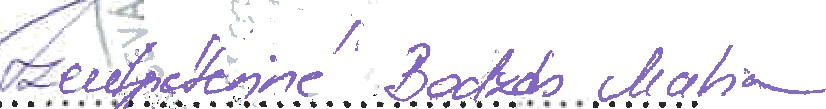 Szentpéteriné Bodzás Mária